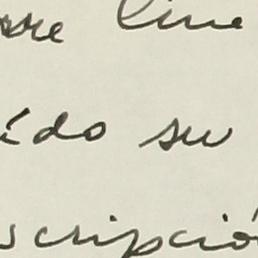 re line
ído su
scripció